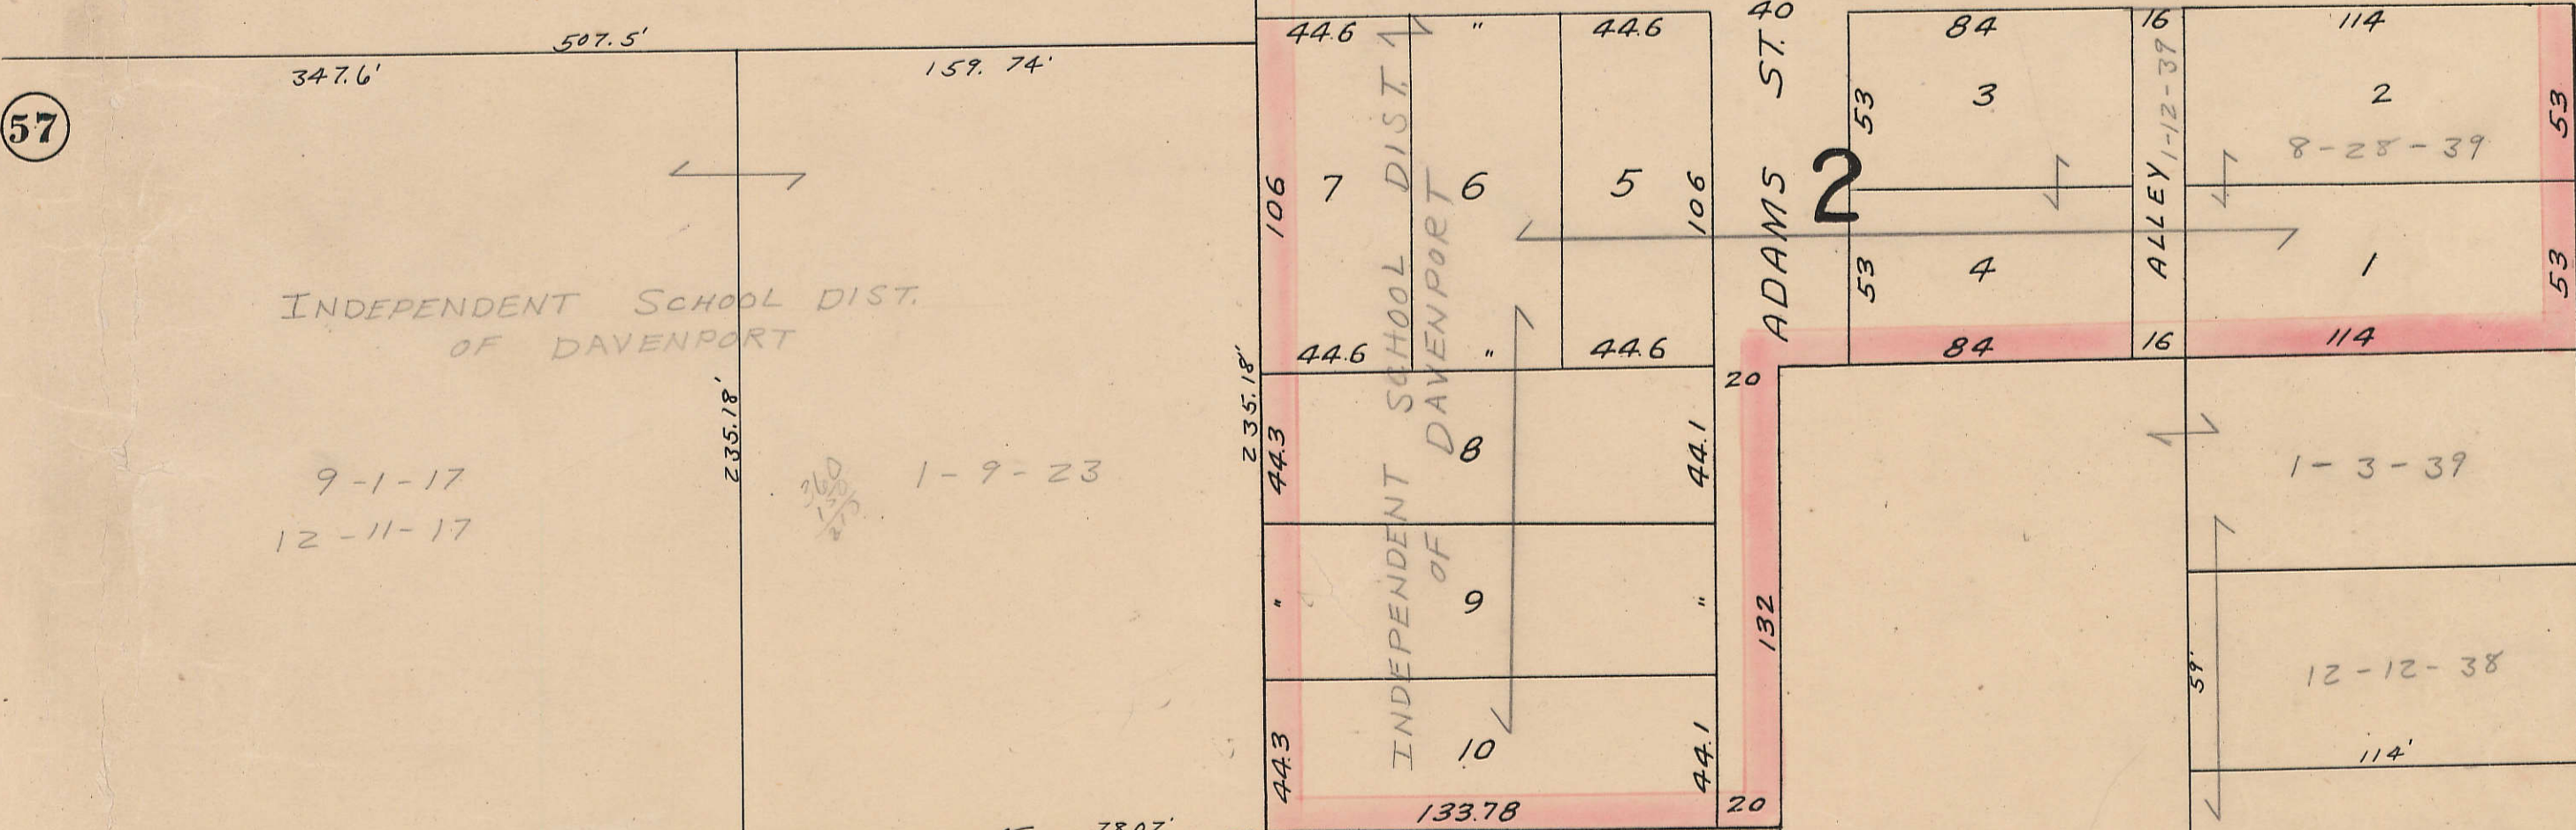 507.5'
347.6'
159.74'
57
INDEPENDENT SCHOOL DIST.
OF DAVENPORT
9-1-17
12-11-17
235.18'
1-9-23
235.18'
44.6 " 44.6
106 7 6 5 106
44.6 " 44.6
INDEPENDENT SCHOOL DIST.
OF DAVENPORT
44.3 8 44.1
" 9 "
44.3 10 44.1
133.78
40
ADAMS ST.
2
20
132
20
84
53 3
53 4
84
16
ALLEY 1-12-39
16
114
2 53
8-28-39
1 53
114
1-3-39
59'
12-12-38
114'